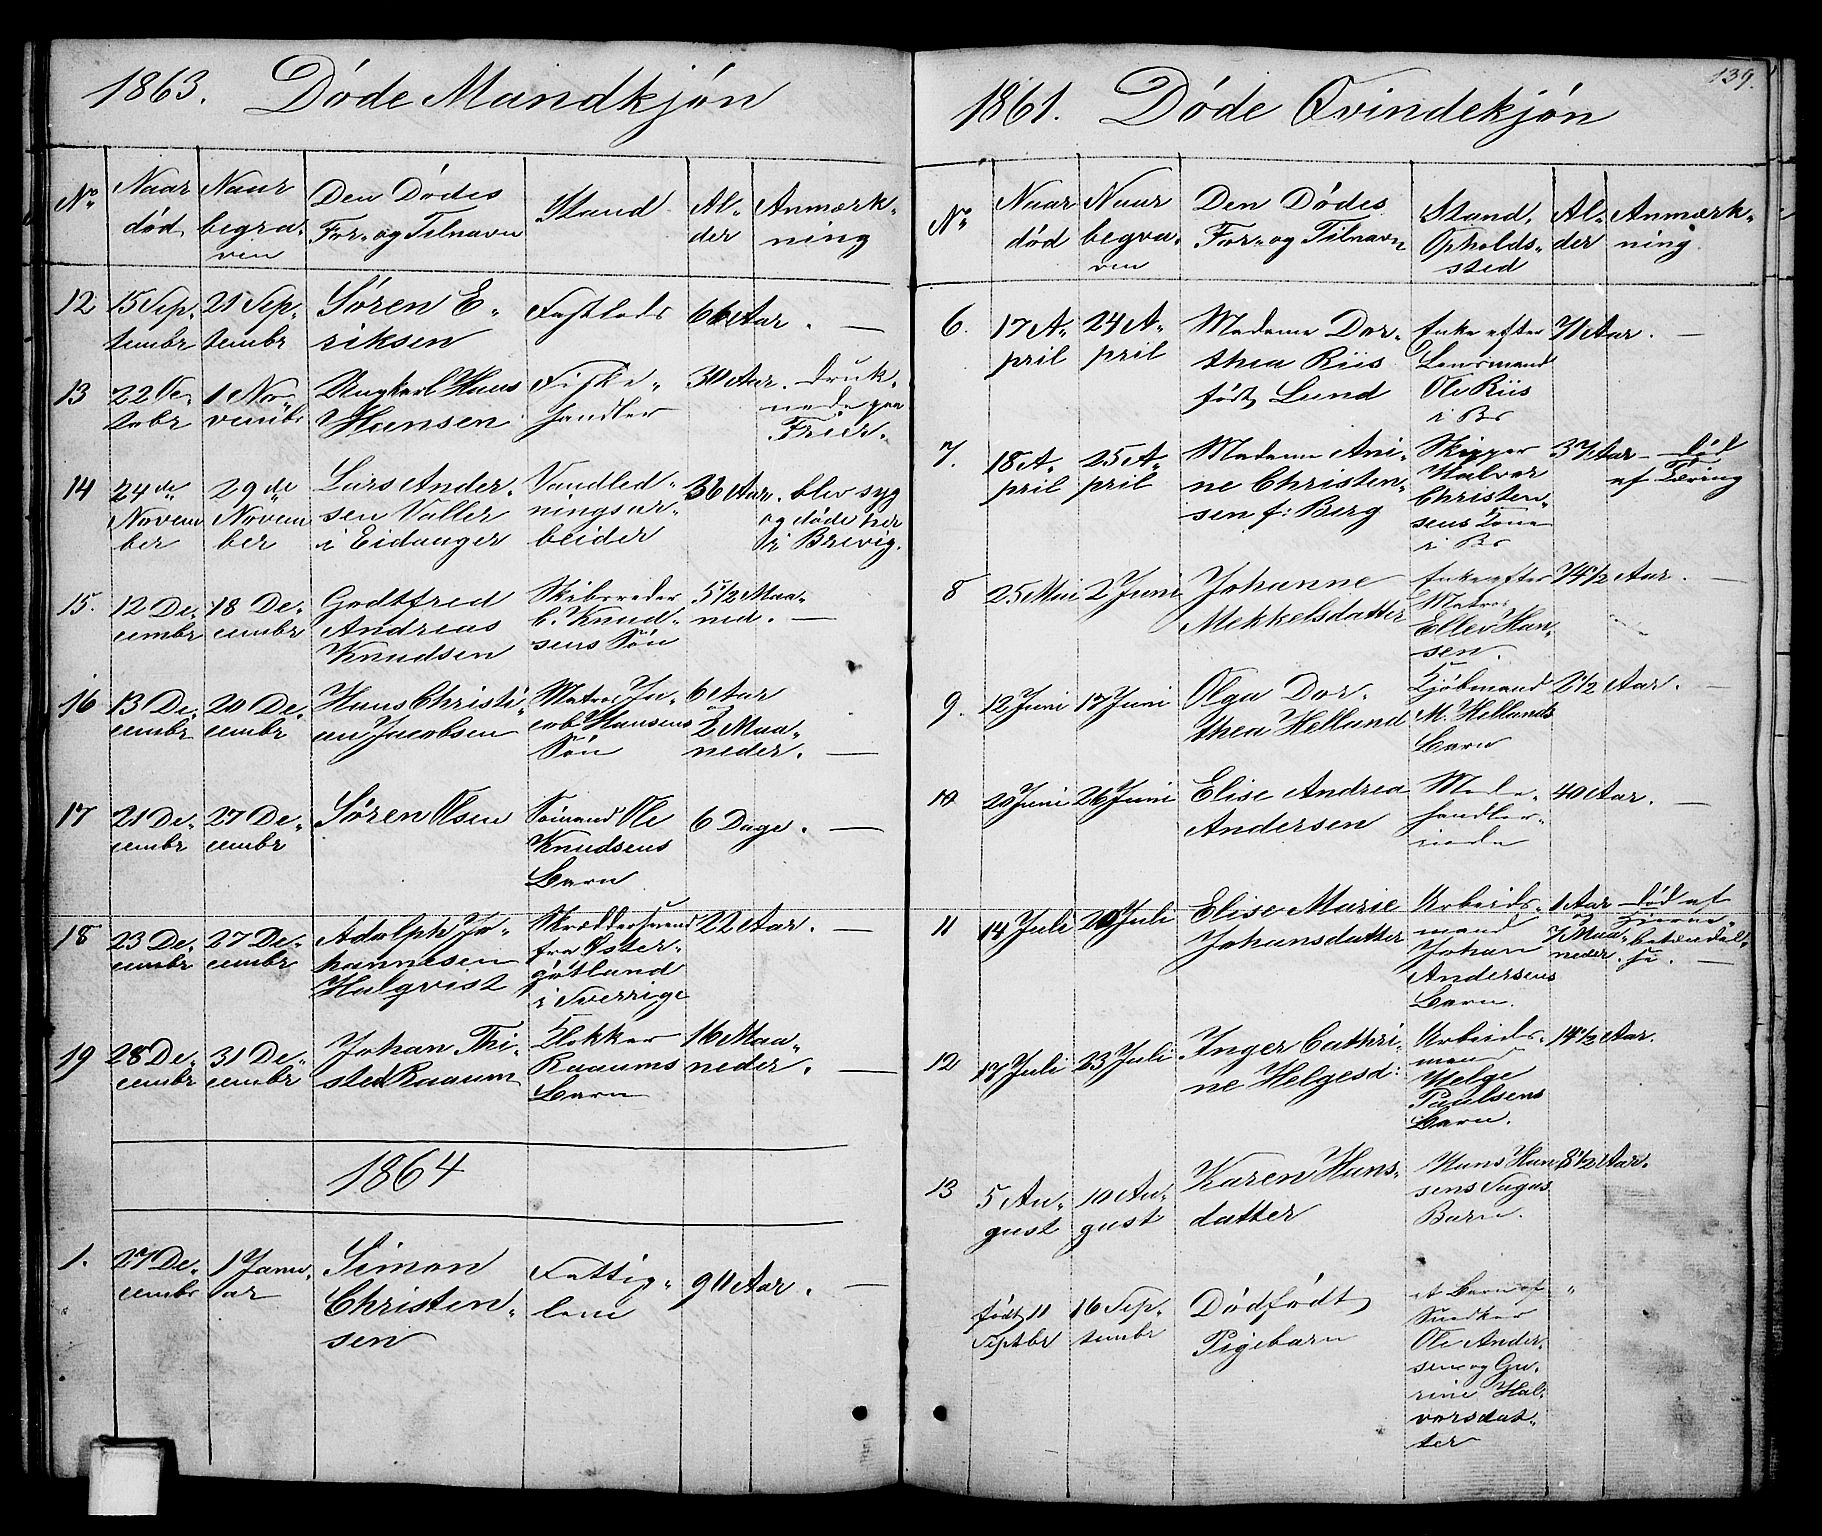 1863. Døde Mandkjøn
No
Naar død
Naar begraven
Den Dødes For- og Tilnavn
Stand
Alder
Anmærkning
12
15 Sep-
tembr
21 Sep-
tembr
Søren E-
riksen
66 Aar. —
13
22 Oc-
tobr
1 No-
vembr
Ungkarl Hans
Hansen
Fiske-
handler
30 Aar. Druk-
nede paa
Frier-
14
24de
Novem
ber
29de
Novem
ber
Lars Ander-
sen Valler
i Eidanger
Vandled-
ningsar-
beider
36 Aar. blev syg
og døde her
i Brevig.
15.
12 De-
cembr
18 De-
cembr
Godtfred
Andreas
Knudsen
Skibsreder
C. Knud-
sens Søn
5 1/2 Maa-
ned. —
16
13 De-
cembr
20 De-
cembr
Hans Christi-
an Jacobsen
Matros Ja-
cob Hansens
Søn
6 Aar
og
2 Maa-
neder. —
17
21 De-
cembr
27 De-
cembr
Søren Olsen
Sømand Ole
Knudsens
Barn
6 Dage. —
18
23 De-
cembr
27 De-
cembr
Adolph Jo-
hannesen
Halqvist
Skræddersvend
fra Øster-
gøtland
i Sverrige
22 Aar. —
19
28 De-
cembr
31 De-
cembr
Johan Thi-
sted Raaum
Klokker
Raaums
Barn
16 Maa-
neder. —
1864
1.
27 De-
cembr
1 Janu-
ar
Simon
Christen-
sen
Fattig-
lem
90 Aar. —
139.
1861. Døde Qvindekjøn
No
Naar død
Naar begraven
Den Dødes For- og Tilnavn
Stand, Opholds-sted
Alder
Anmærkning.
6.
17 A-
pril
24 A-
pril
Madame Dor-
thea Riis
født Lund
Enke efter
Lensmand
Ole Riis
i Br
71 Aar. —
7.
18 A-
pril
25 A-
pril
Madame Ani-
ne Christen-
sen f: Berg
Skipper
Halvor
Christen-
sens Kone
i Br
37 Aar — død
af Tæring
8
25 Mai
2 Juni
Johanne
Mekkelsdatter
Enke efter
Matros
Ellev Han-
sen.
74 1/2 Aar. —
9.
12 Juni
17 Juni
Olga Dor-
thea Helland
Kjøbmand
M. Hellands
Barn
2 1/2 Aar. —
10
20 Juni
26 Juni
Elise Andrea
Andersen
Mode-
handler-
inde
40 Aar. —
11
14 Juli
20 Juli
Elise Marie
Johansdatter
Arbeids-
mand
Johan
Andersens
Barn.
1 Aar
og
7 Maa-
neder.
død af
Hjerne-
betændel-
se. —
12
18 Juli
23 Juli
Inger Cathri-
ne Helgesd:
Arbeids-
mand
Helge
Paulsens
Barn.
14 1/2 Aar.
13
5 Au-
gust
10 Au-
gust
Karen Hans-
datter
Hans Han-
sens Sagus
Barn.
8 1/2 Aar.
født 11
Septbr
16 Sep-
tembr
Dødfødt
Pigebarn
et Barn af
Snedker
Ole Ander-
sen og Gu-
rine Hal-
vorsdat-
ter
"